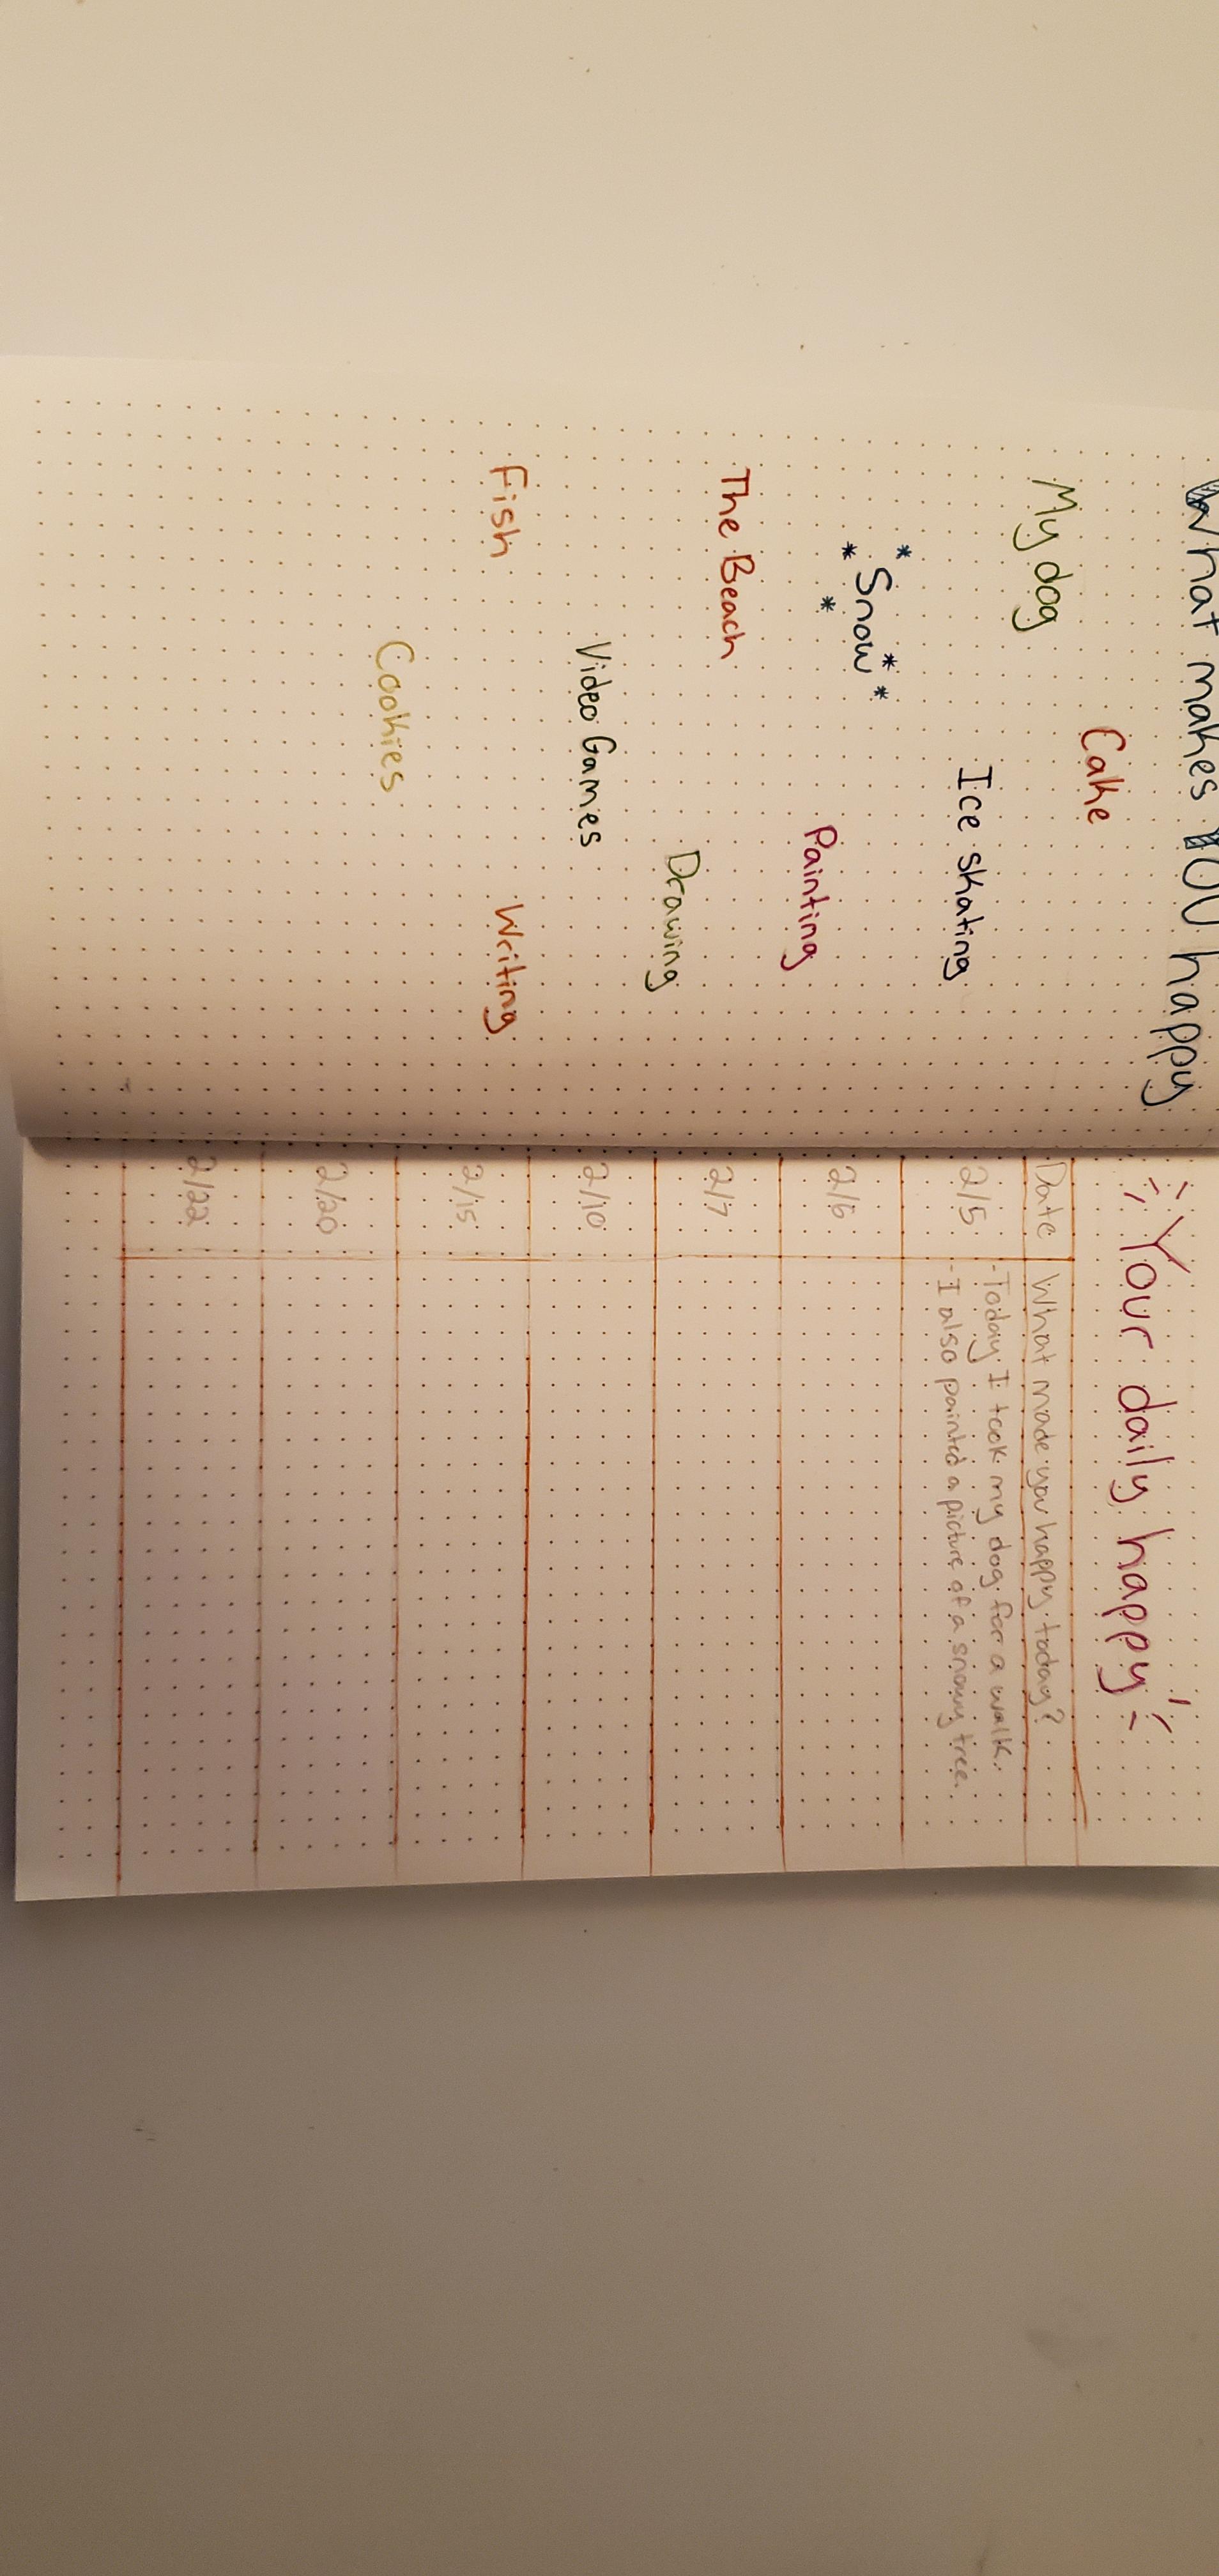 What makes YOU happy
My dog
Cake
Ice skating
*Snow*
Painting
The Beach
Drawing
Video Games
Fish
Writing
Cookies
Your daily happy!
Date What made you happy today?
2/5 -Today I took my dog for a walk.
-I also painted a picture of a snowy tree.
2/6
2/7
2/10
2/15
2/20
2/22